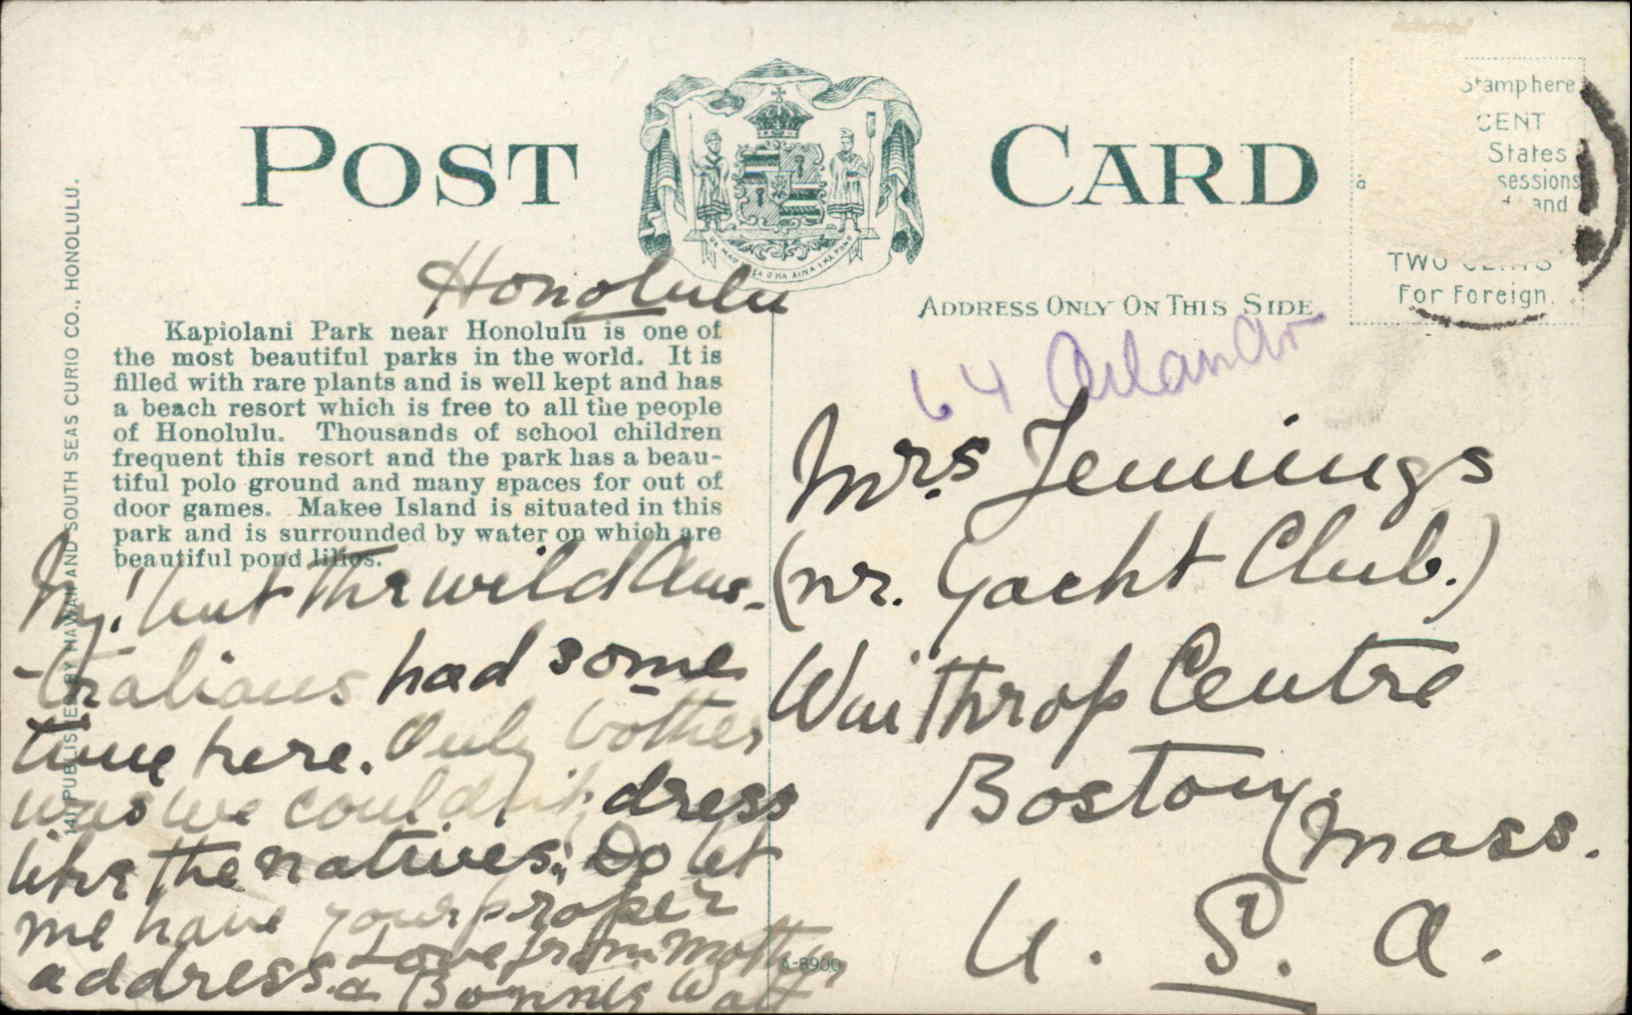 POST CARD
Stamp here
CENT
States
sessions
and
TWO CENTS
For Foreign.
UA MAU KE EA O KA AINA I KA PONO
Honolulu
ADDRESS ONLY ON THIS SIDE
Kapiolani Park near Honolulu is one of
the most beautiful parks in the world. It is
filled with rare plants and is well kept and has
a beach resort which is free to all the people
of Honolulu. Thousands of school children
frequent this resort and the park has a beau-
tiful polo ground and many spaces for out of
door games. Makee Island is situated in this
park and is surrounded by water on which are
beautiful pond lilies.
My! but the wild Aus-
-tralians had some
time here. Only bother
was we couldn't dress
like the natives. Do let
me have your proper
address. Love from Mother
& Bonnie Walt
64 Orlando
Mrs Jennings
(nr. Yacht Club.)
Winthrop Centre
Boston,
Mass.
U. S. A.
A-8900
141 PUBLISHED BY HAWAII AND SOUTH SEAS CURIO CO., HONOLULU.